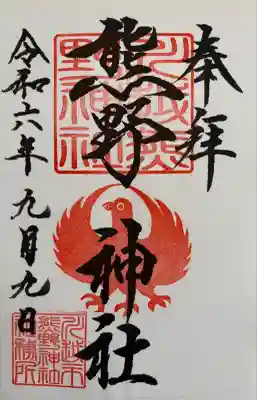 奉拝
熊野神社
令和六年九月九日
川越熊野神社
川越市
熊野神社
社務所